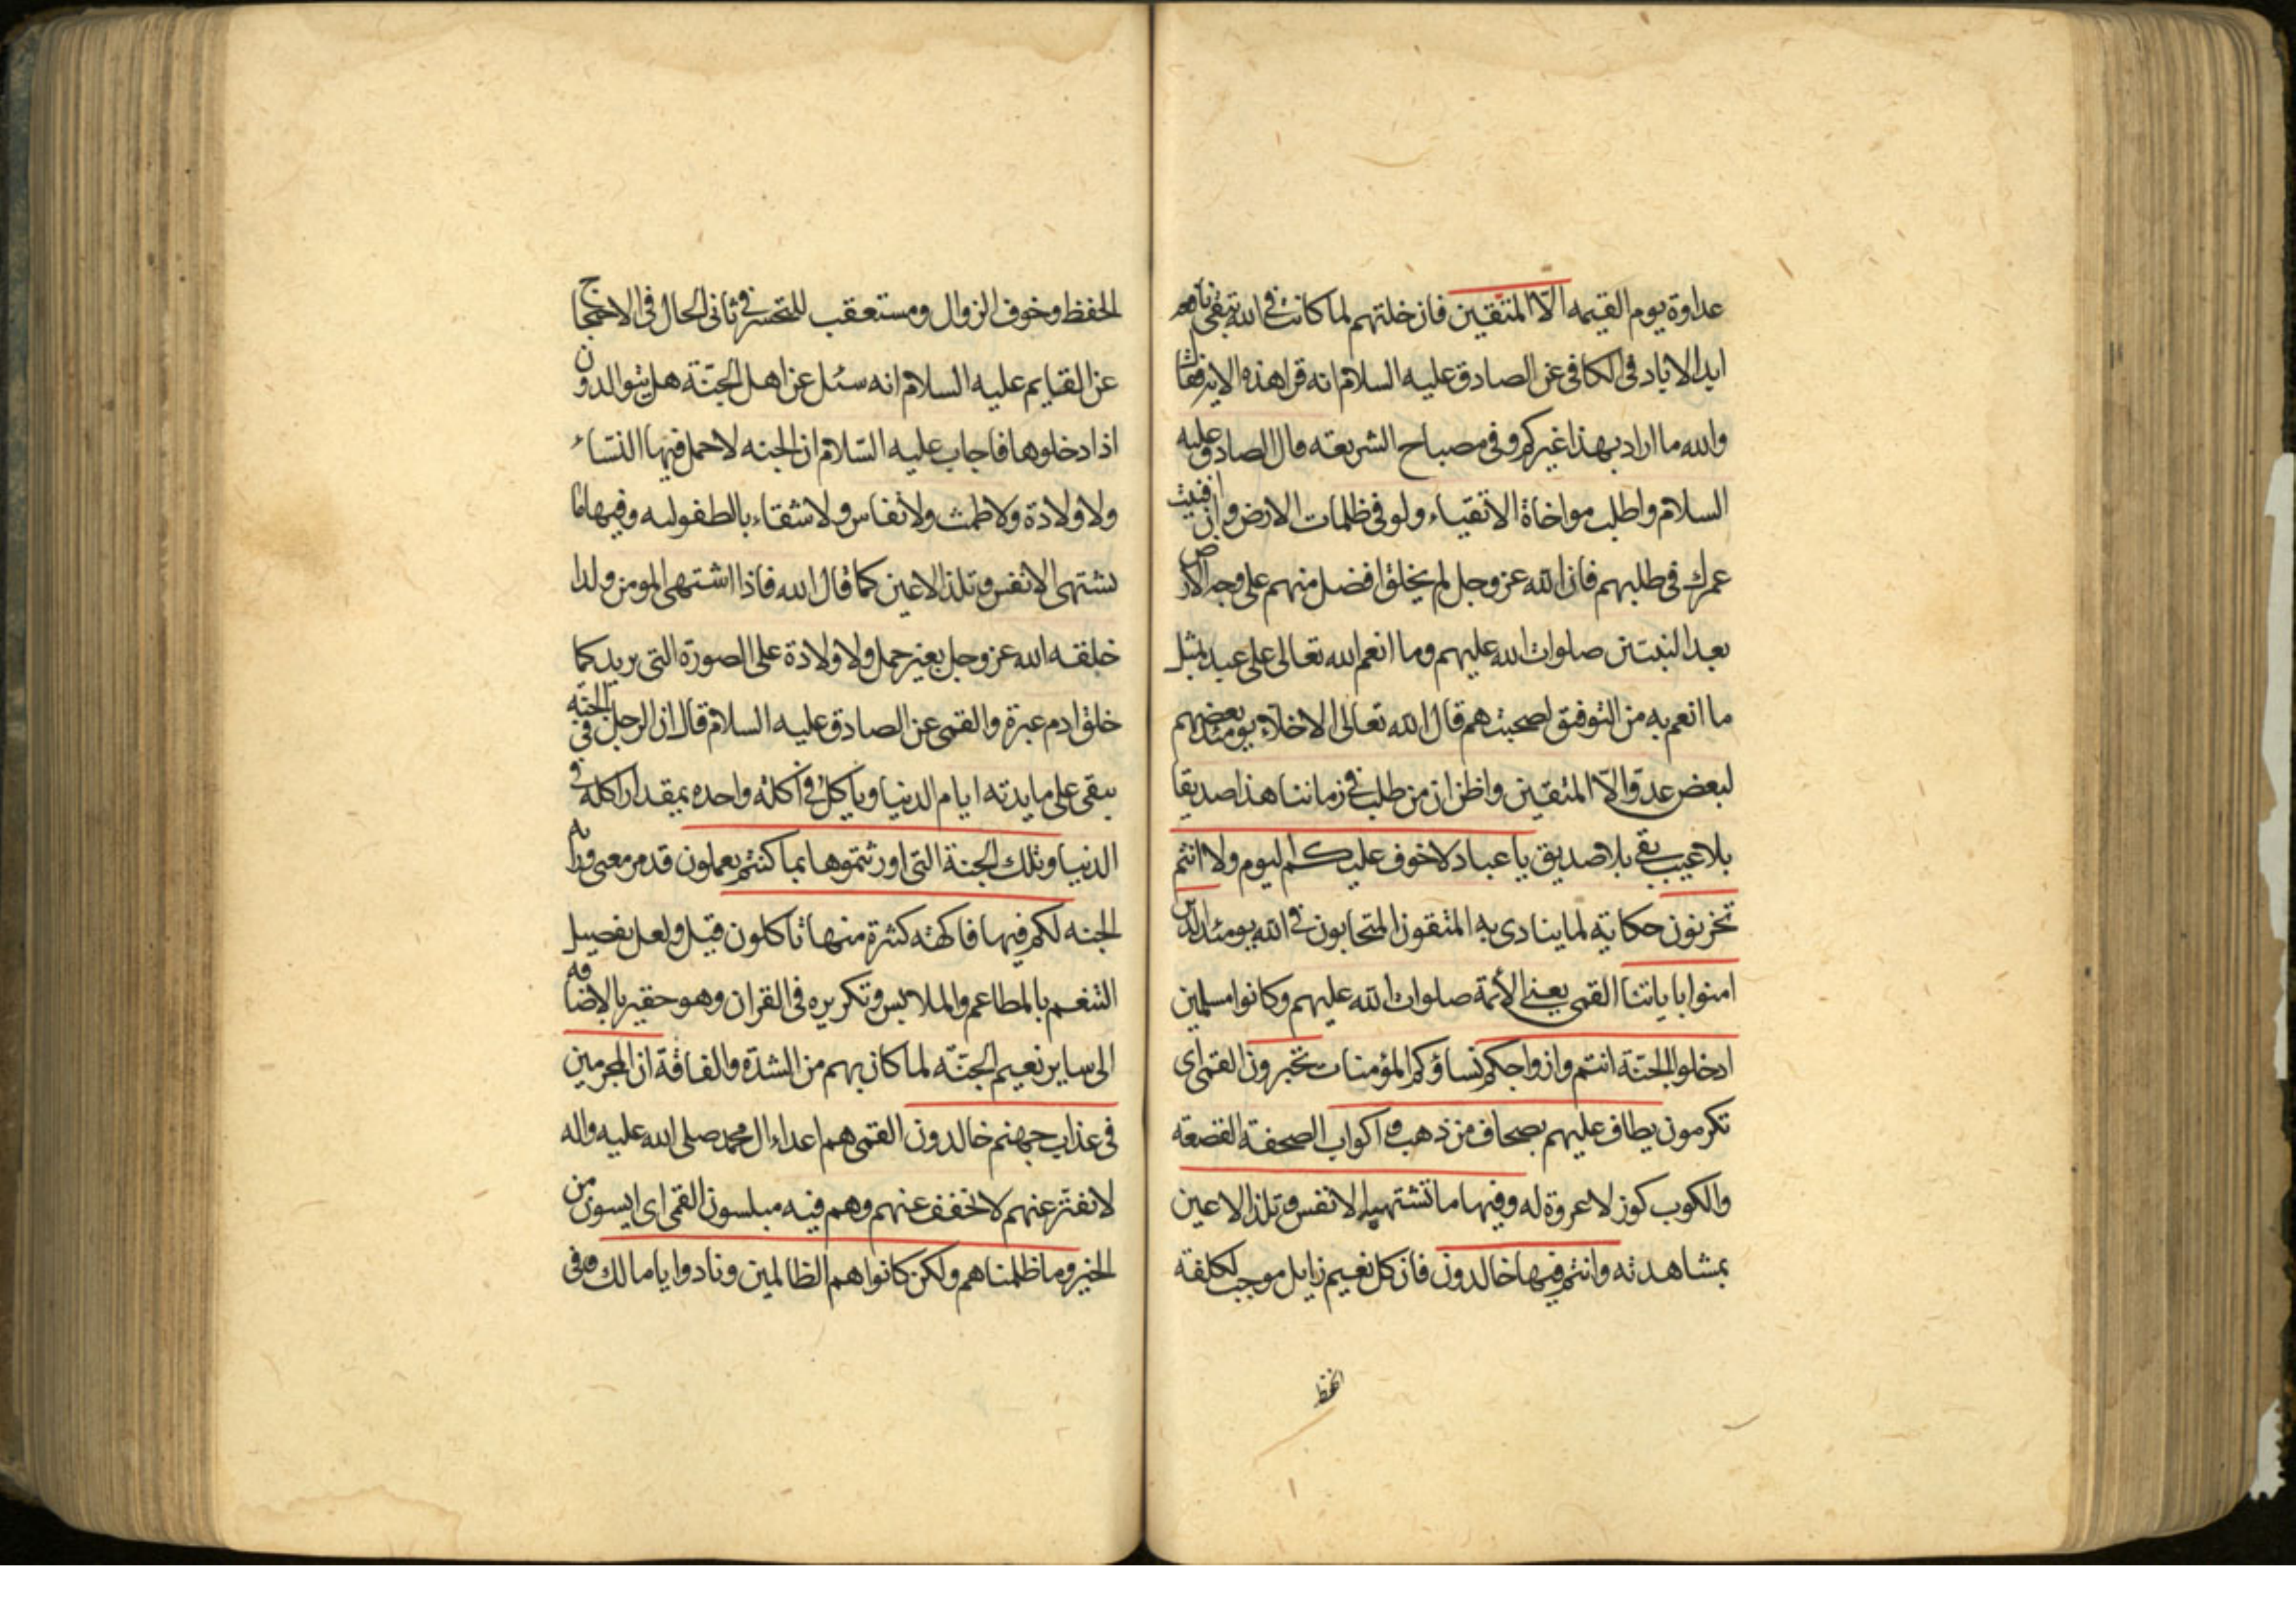 عداوة يوم القيمه الّا المتقين فان خلتهم لما كانت في الله تبقى نافعه
ابد الاباد في الكافي عن الصادق عليه السلام انه قرا هذه الاية فقال
والله ما اراد بهذا غيركم وفي مصباح الشريعه قال الصادق عليه
السلام واطلب مواخاة الاتقياء ولو في ظلمات الارض وان افنيت
عمرك في طلبهم فان الله عز وجل لم يخلق افضل منهم على وجه الارض
بعد النبيين صلوات الله عليهم وما انعم الله تعالى على عبد بمثل
ما انعم به من التوفيق لصحبتهم قال الله تعالى الاخلاء يومئذ بعضهم
لبعض عدوّ الّا المتقين واظن ان من طلب في زماننا هذا صديقا
بلا عيب بقى بلا صديق يا عباد لا خوف عليكم اليوم ولا انتم
تحزنون حكاية لما ينادى به المتقون المتحابون في الله يومئذ الذين
امنوا باياتنا القمى يعني الأئمة صلوات الله عليهم وكانوا مسلمين
ادخلوا الجنّة انتم وازواجكم نساؤكم المؤمنات تحبرون القمى اى
تكرمون يطاف عليهم بصحاف من ذهب واكواب الصحفة القصعه
والكوب كوز لا عروة له وفيها ما تشتهيه الانفس وتلذ الاعين
بمشاهدته وانتم فيها خالدون فان كل نعيم زايل موجب لكلفة
الحفظ
الحفظ وخوف الزوال ومستعقب للتحسر في ثانى الحال في الاحتجاج
عن القايم عليه السلام انه سئل عن اهل الجنّة هل يتوالدون
اذا دخلوها فاجاب عليه السّلام ان الجنه لا حمل فيها للنساء
ولا ولادة ولا طمث ولا نفاس ولا شقاء بالطفوليه وفيها ما
تشتهى الانفس وتلذ الاعين كما قال الله فاذا اشتهى المومن ولدا
خلقه الله عز وجل بغير حمل ولا ولادة على الصورة التى يريد كما
خلق ادم عبرة والقمى عن الصادق عليه السلام قال ان الرجل في الجنه
يبقى على مايدته ايام الدنيا وياكل في اكلة واحده بمقدار اكله في
الدنيا وتلك الجنة التى اورثتموها بما كنتم تعملون قد مر معنى وراثه
الجنه لكم فيها فاكهة كثيرة منها تاكلون قيل ولعل تفصيل
التنعم بالمطاعم والملابس وتكريره في القران وهو حقير بالاضافه
الى ساير نعيم الجنّه لما كان بهم من الشدّة والفاقة ان المجرمين
في عذاب جهنم خالدون القمى هم اعداء ال محمد صلى الله عليه واله
لا يفتر عنهم لا يخفف عنهم وهم فيه مبلسون القمى اى ايسون من
الخير وما ظلمناهم ولكن كانوا هم الظالمين ونادوا يا مالك وفي